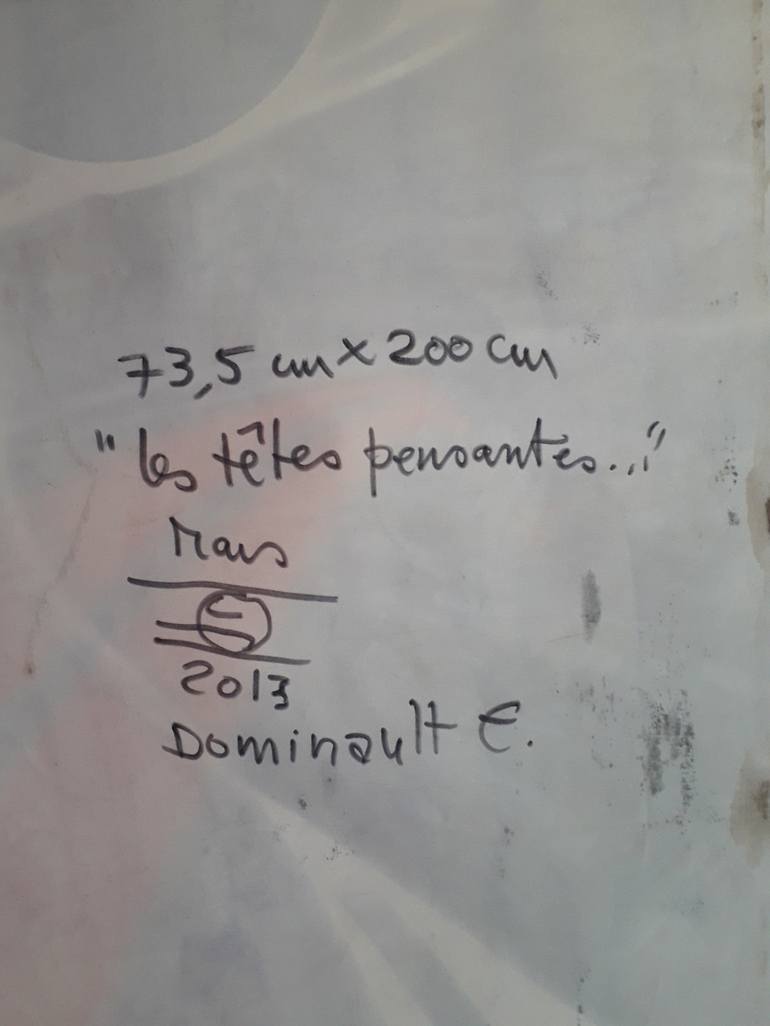 73,5 cm x 200 cm
"les têtes pensantes..."
Mars
2013
Dominault E.